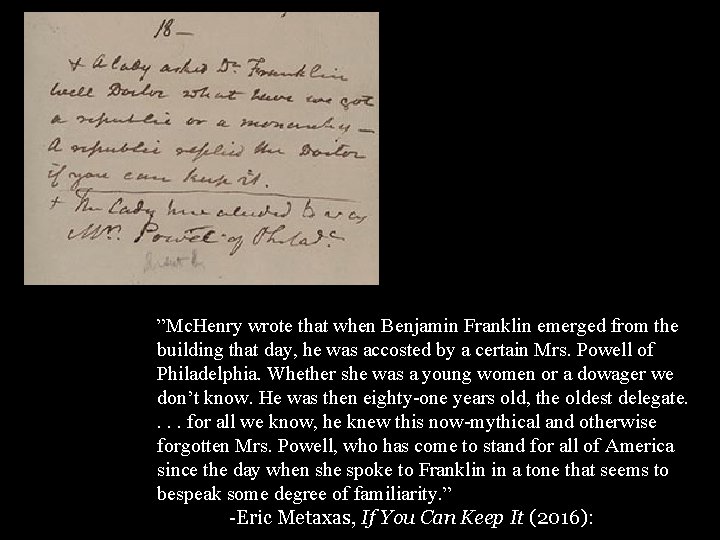 18 —
+ A lady asked Dr. Franklin
well Doctor what have we got
a republic or a monarchy —
A republic replied the Doctor
if you can keep it.
+ The Lady here aluded to was
Mrs. Powel of Philada.
”Mc.Henry wrote that when Benjamin Franklin emerged from the
building that day, he was accosted by a certain Mrs. Powell of
Philadelphia. Whether she was a young women or a dowager we
don’t know. He was then eighty-one years old, the oldest delegate.
. . . for all we know, he knew this now-mythical and otherwise
forgotten Mrs. Powell, who has come to stand for all of America
since the day when she spoke to Franklin in a tone that seems to
bespeak some degree of familiarity.”
-Eric Metaxas, If You Can Keep It (2016):